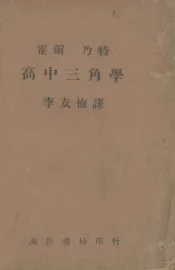 霍爾 乃特
高中三角學
李友梅譯
書局印行